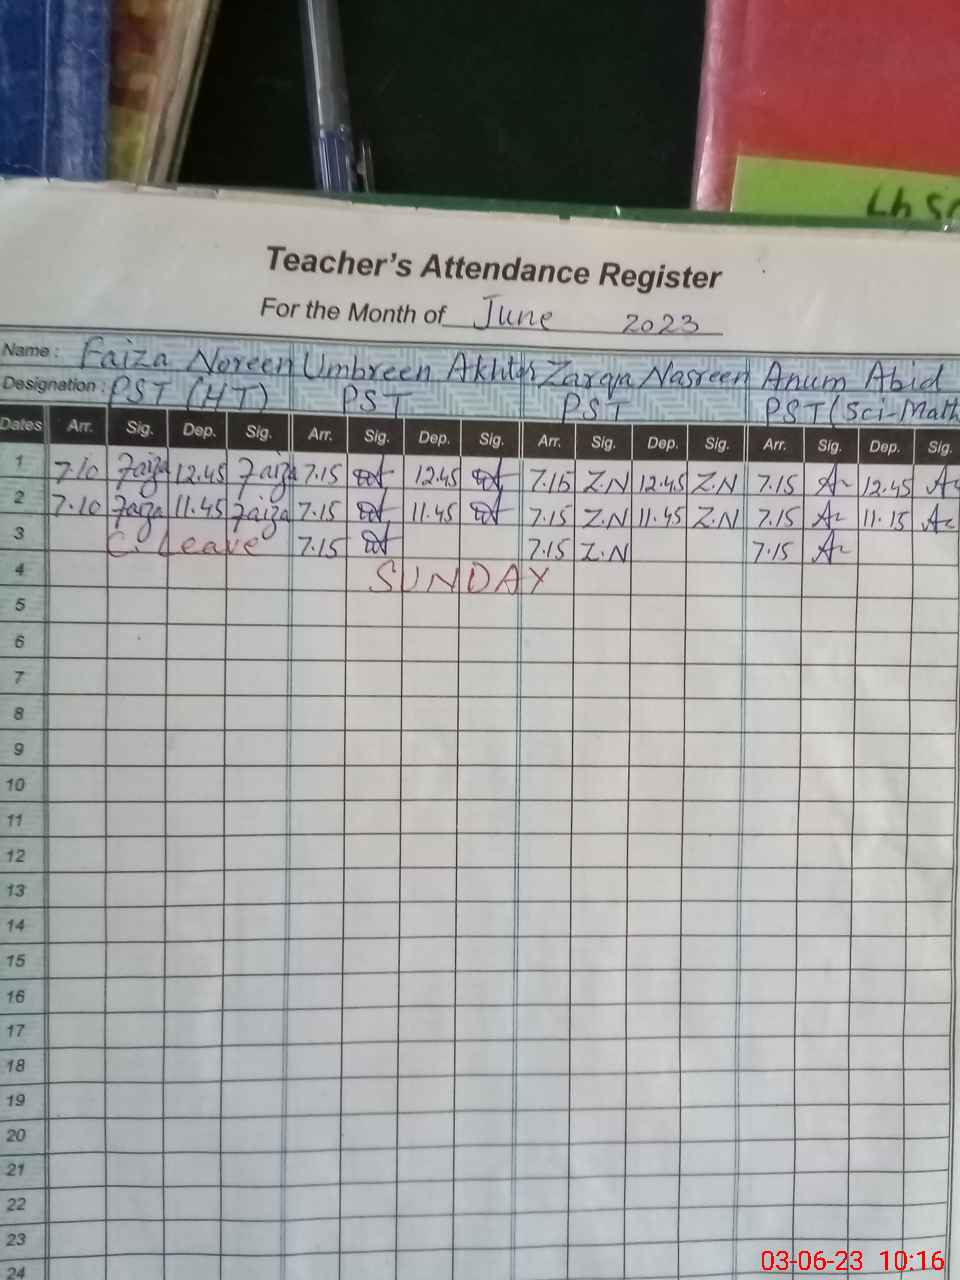 Teacher's Attendance Register
For the Month of June 2023
Name: Faiza Noreen Umbreen Akhtar Zarqa Nasreen Anum Abid
Designation: PST (HT) PST PST PST (Sci-Math
Dates Arr. Sig. Dep. Sig. Arr. Sig. Dep. Sig. Arr. Sig. Dep. Sig. Arr. Sig. Dep. Sig.
1 7.10 Faiza 12.45 Faiza 7.15 12.45 7.15 Z.N 12.45 Z.N 7.15 12.45
2 7.10 Faiza 11.45 Faiza 7.15 11.45 7.15 Z.N 11.45 Z.N 7.15 11.15
3 C. Leave 7.15 7.15 Z.N 7.15
4 SUNDAY
5
6
7
8
9
10
11
12
13
14
15
16
17
18
19
20
21
22
23
24
03-06-23 10:16